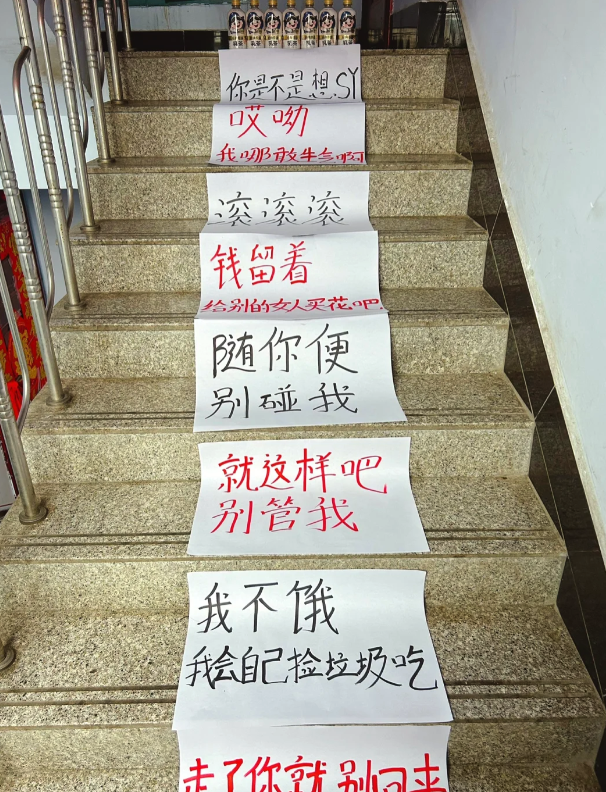 你是不是想SY
哎呦
我哪敢生气啊
滚滚滚
钱留着
给别的女人买花吧
随你便
别碰我
就这样吧
别管我
我不饿
我会自己捡垃圾吃
走了你就别回来